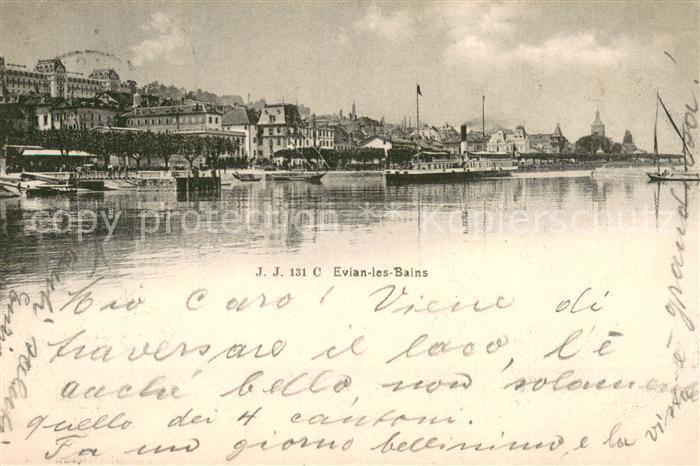 copy protection ** Kopierschutz
J. J. 131 C Evian-les-Bains
Mio Caro! Viene di
traversare il laco, l'è
anché bello, non solamente
quello dei 4 cantoni.
Fa un giorno bellissimo, e la
vista è grandi
saluti